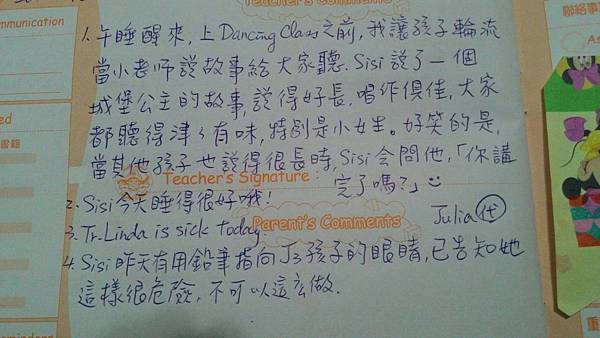 Teacher's Comments
1. 午睡醒來, 上 Dancing Class 之前, 我讓孩子輪流
當小老師說故事給大家聽. Sisi 說了一個
城堡公主的故事, 說得好長, 唱作俱佳, 大家
都聽得津々有味, 特別是小女生。好笑的是,
當其他孩子也說得很長時, Sisi 會問他,「你講
完了嗎?」
Teacher's Signature :
2. Sisi 今天睡得很好哦!
Julia 代
3. Tr. Linda is sick today.
Parent's Comments
4. Sisi 昨天有用鉛筆指向 J3 孩子的眼睛, 已告知她
這樣很危險, 不可以這么做.
mmunication
書籍
聯絡事
As
重